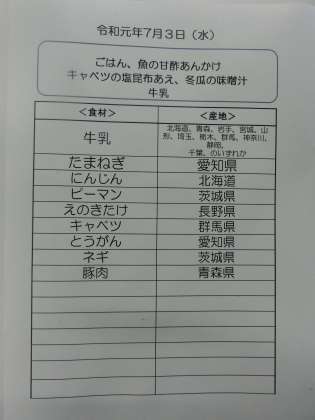 令和元年７月３日（水）
ごはん、魚の甘酢あんかけ
キャベツの塩昆布あえ、冬瓜の味噌汁
牛乳
＜食材＞ ＜産地＞
牛乳 北海道、青森、岩手、宮城、山
形、埼玉、栃木、群馬、神奈川、
静岡、
千葉、のいずれか
たまねぎ 愛知県
にんじん 北海道
ピーマン 茨城県
えのきたけ 長野県
キャベツ 群馬県
とうがん 愛知県
ネギ 茨城県
豚肉 青森県